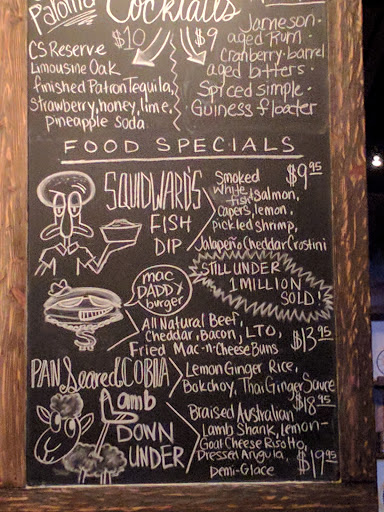 Paloma
Cocktails
CS Reserve
Limousine Oak
finished Patron Tequila,
strawberry, honey, lime,
pineapple soda
$10
$9
Jameson·
aged Rum·
Cranberry·barrel
aged bitters·
Spiced simple·
Guiness floater
FOOD SPECIALS
SQUIDWARD'S
FISH
DIP
Smoked
white
fish, salmon,
capers, lemon,
pickled shrimp,
Jalapeño Cheddar Crostini
$9.95
STILL UNDER
1 MILLION
SOLD!
mac
DADDY
burger
All Natural Beef,
Cheddar, Bacon, LTO,
Fried Mac-n-Cheese Buns
$13.95
PAN Seared COBIIA
Lemon Ginger Rice,
Bokchoy, Thai Ginger Sauce
$18.95
Lamb
DOWN
UNDER
Braised Australian
Lamb Shank, lemon-
Goat Cheese Risotto,
Dressed Arugula,
Demi-Glace
$19.95